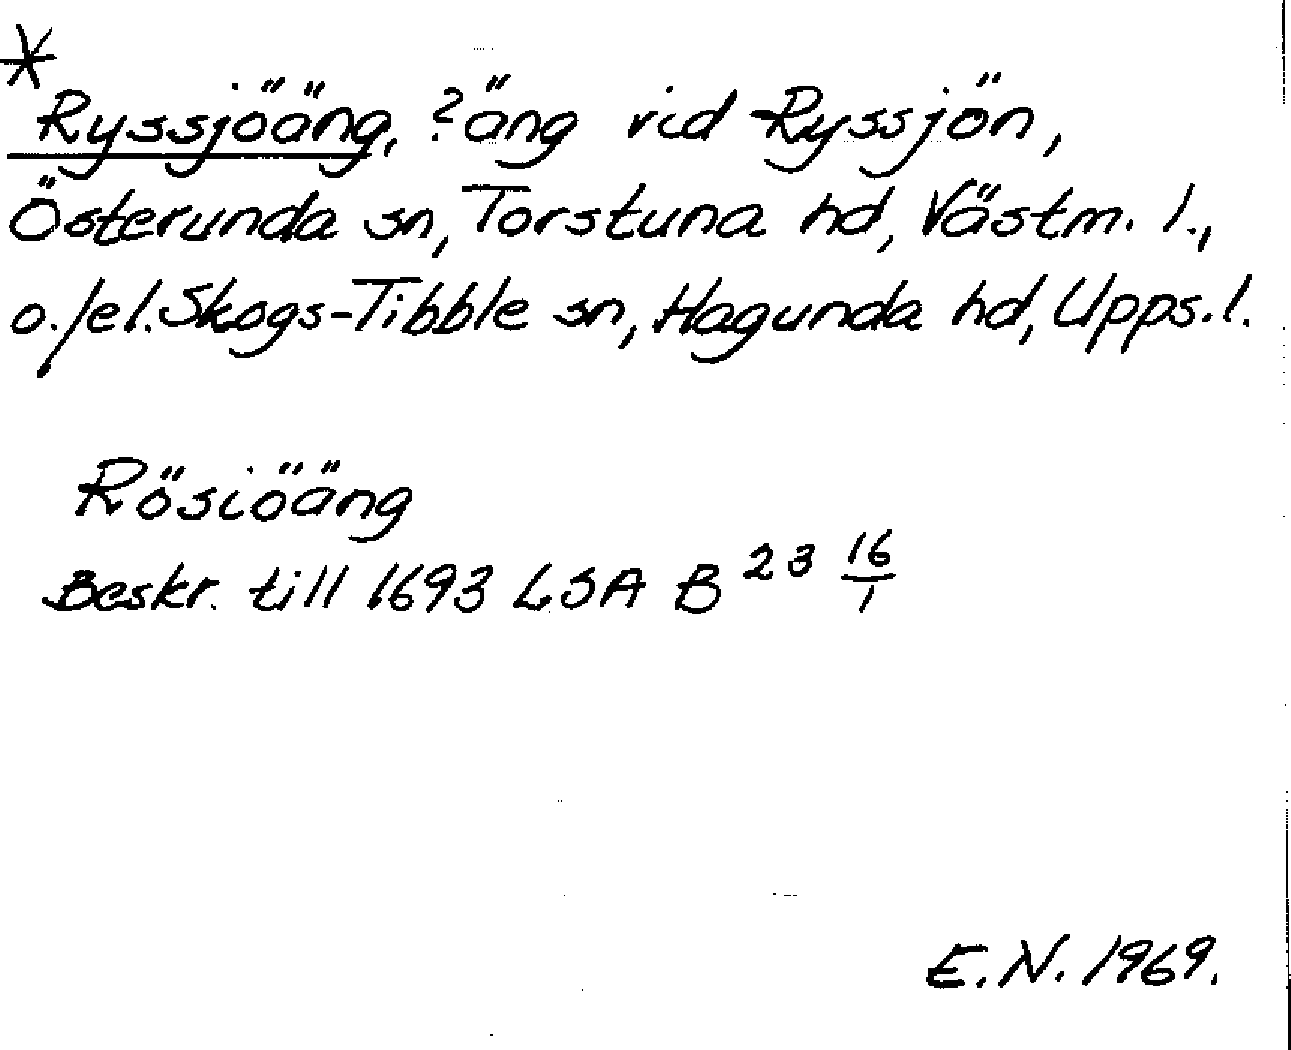 *
Ryssjöäng, ?äng vid Ryssjön,
Österunda sn, Torstuna hd, Västm. l.,
o./el. Skogs-Tibble sn, Hagunda hd, Upps. l.
Rösiöäng
Beskr. till 1693 LSA B 23 16/1
E.N. 1969.